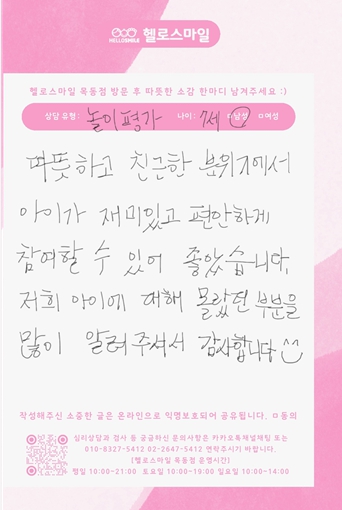 HELLOSMILE 헬로스마일
헬로스마일 목동점 방문 후 따뜻한 소감 한마디 남겨주세요 :)
상담 유형: 놀이평가 나이: 7세 ㅁ남성 ㅁ여성
따뜻하고 친근한 분위기에서
아이가 재미있고 편안하게
참여할 수 있어 좋았습니다.
저희 아이에 대해 몰랐던 부분을
많이 알려주셔서 감사합니다 ^^
작성해주신 소중한 글은 온라인으로 익명보호되어 공유됩니다. ㅁ동의
심리상담과 검사 등 궁금하신 문의사항은 카카오톡채널채팅 또는
010-8327-5412 02-2647-5412 연락주시기 바랍니다.
(헬로스마일 목동점 운영시간)
평일 10:00~21:00 토요일 10:00~19:00 일요일 10:00~14:00